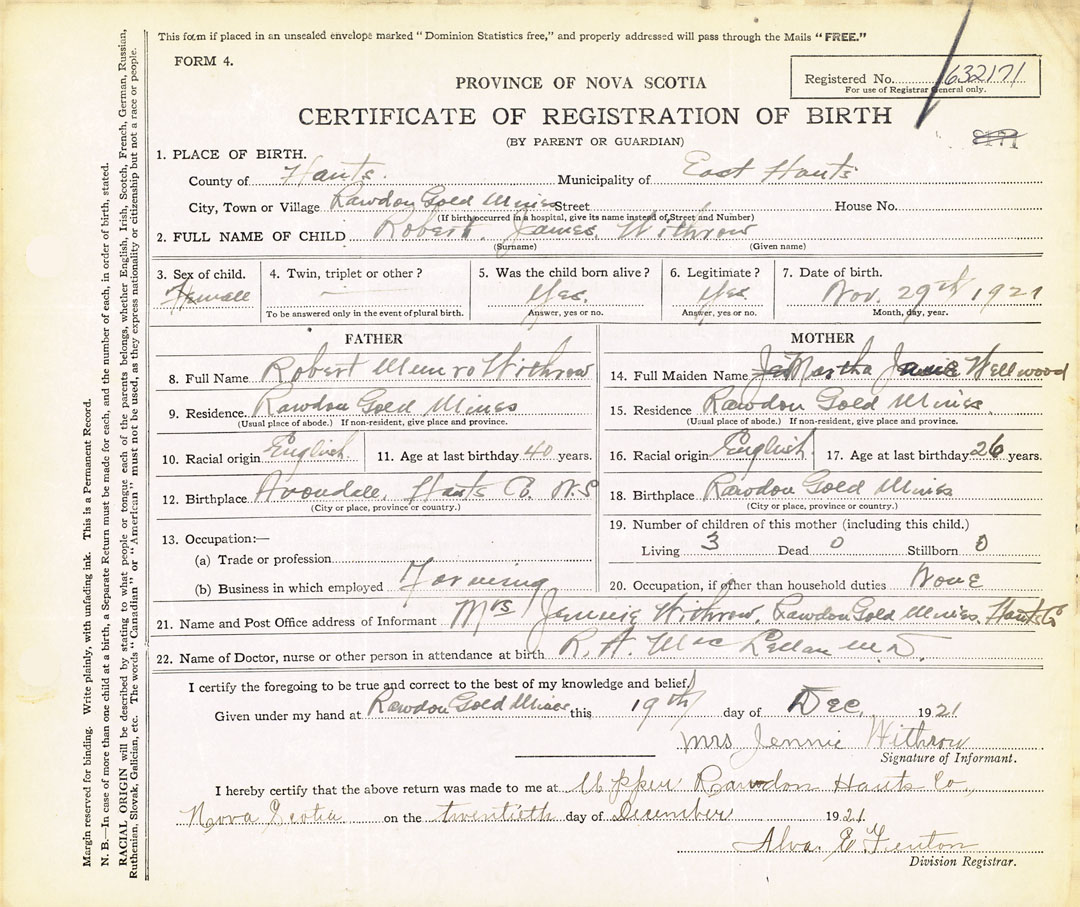 This form if placed in an unsealed envelope marked "Dominion Statistics free," and properly addressed will pass through the Mails "FREE."
FORM 4.
Registered No. 632171
For use of Registrar General only.
PROVINCE OF NOVA SCOTIA
CERTIFICATE OF REGISTRATION OF BIRTH
(BY PARENT OR GUARDIAN)
1. PLACE OF BIRTH.
County of Hants. Municipality of East Hants
City, Town or Village Rawdon Gold Mines Street House No.
(If birth occurred in a hospital, give its name instead of Street and Number)
2. FULL NAME OF CHILD Robert James Withrow
(Surname) (Given name)
3. Sex of child. 4. Twin, triplet or other? 5. Was the child born alive? 6. Legitimate? 7. Date of birth.
Yes. Yes Nov. 29th 1921
To be answered only in the event of plural birth. Answer, yes or no. Answer, yes or no. Month, day, year.
FATHER MOTHER
8. Full Name Robert Munro Withrow
14. Full Maiden Name Martha Jennie Wellwood
9. Residence. Rawdon Gold Mines
(Usual place of abode.) If non-resident, give place and province.
15. Residence Rawdon Gold Mines.
(Usual place of abode.) If non-resident, give place and province.
10. Racial origin English 11. Age at last birthday 40 years.
16. Racial origin English 17. Age at last birthday 26 years.
12. Birthplace Avondale, Hants Co. N.S
(City or place, province or country.)
18. Birthplace Rawdon Gold Mines
(City or place, province or country.)
13. Occupation:—
(a) Trade or profession
(b) Business in which employed Farming
19. Number of children of this mother (including this child.)
Living 3 Dead 0 Stillborn 0
20. Occupation, if other than household duties None
21. Name and Post Office address of Informant Mrs Jennie Withrow, Rawdon Gold Mines. Hants Co
22. Name of Doctor, nurse or other person in attendance at birth R. A. MacLellan M.D.
I certify the foregoing to be true and correct to the best of my knowledge and belief.
Given under my hand at Rawdon Gold Mines this 19th day of Dec. 1921
Mrs Jennie Withrow
Signature of Informant.
I hereby certify that the above return was made to me at Upper Rawdon Hants Co,
Nova Scotia on the twentieth day of December 1921.
Alva. E. Fenton
Division Registrar.
Margin reserved for binding. Write plainly, with unfading ink. This is a Permanent Record.
N. B.—In case of more than one child at a birth, a Separate Return must be made for each, and the number of each, in order of birth, stated.
RACIAL ORIGIN will be described by stating to what people or tongue each of the parents belongs, whether English, Irish, Scotch, French, German, Russian,
Ruthenian, Slovak, Galician, etc. The words "Canadian" or "American" must not be used, as they express nationality or citizenship but not a race or people.